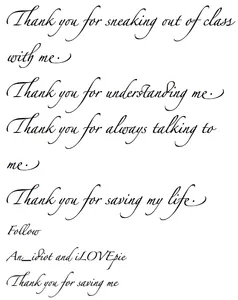 Thank you for sneaking out of class
with me.
Thank you for understanding me.
Thank you for always talking to
me.
Thank you for saving my life.
Follow
An_idiot and iLOVEpie
Thank you for saving me